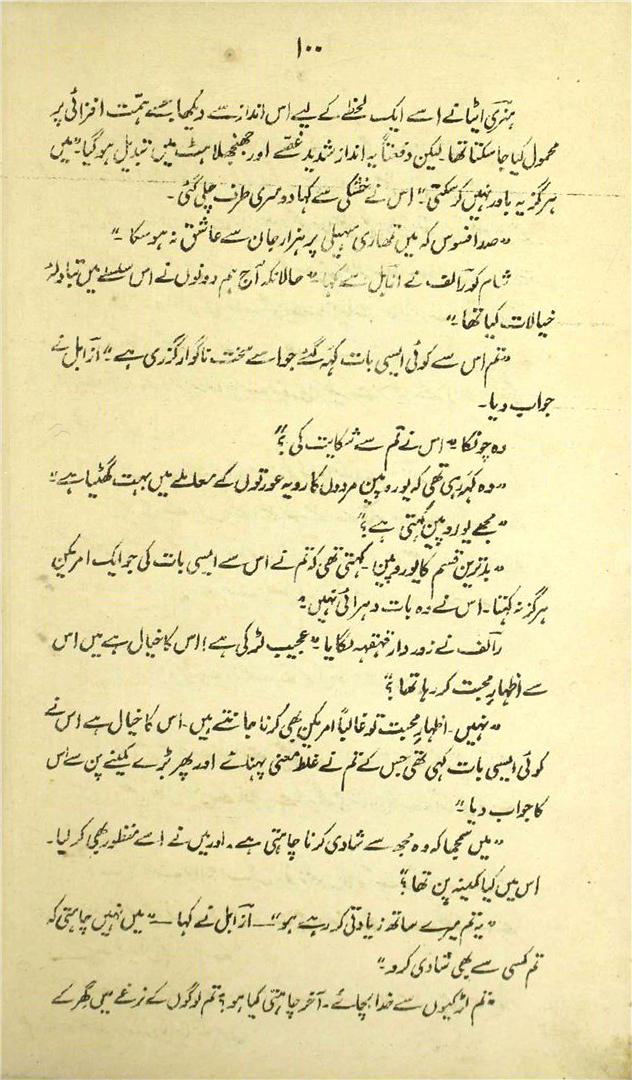 ۱۰۰
ہنری ایٹا نے اسے ایک لحظے کے لیے اس انداز سے دیکھا جسے ہمت افزائی پر
محمول کیا جا سکتا تھا لیکن دفعتاً یہ انداز شدید غصے اور جھنجھلاہٹ میں تبدیل ہو گیا۔ "میں
ہرگز یہ باور نہیں کر سکتی۔" اس نے خشکی سے کہا دوسری طرف چلی گئی۔
"صد افسوس کہ میں تمہاری سہیلی پر ہزار جان سے عاشق نہ ہو سکا۔"
شام کو رالف نے ازابل سے کہا۔ "حالانکہ آج ہم دونوں نے اس سلسلے میں تبادلۂ
خیالات کیا تھا۔"
"تم اس سے کوئی ایسی بات کہہ گئے جو اسے سخت ناگوار گزری ہے۔" ازابل نے
جواب دیا۔
وہ چونکا۔ "اس نے تم سے شکایت کی؟"
"وہ کہہ رہی تھی کہ یوروپین مردوں کا رویہ عورتوں کے معاملے میں بہت گھٹیا ہے۔"
"مجھے یوروپین کہتی ہے؟"
"بدترین قسم کا یوروپین۔ کہتی تھی کہ تم نے اس سے ایسی بات کی جو ایک امریکن
ہرگز نہ کہتا۔ اس نے وہ بات دہرائی نہیں۔"
رالف نے زور دار قہقہہ لگایا۔ "عجیب لڑکی ہے! اس کا خیال ہے میں اس
سے اظہار محبت کر رہا تھا؟"
"نہیں۔ اظہار محبت تو غالباً امریکن بھی کرنا جانتے ہیں۔ اس کا خیال ہے اس نے
کوئی ایسی بات کہی تھی جس کے تم نے غلط معنی پہنائے اور پھر بڑے کمینے پن سے اس
کا جواب دیا۔"
"میں سمجھا کہ وہ مجھ سے شادی کرنا چاہتی ہے۔ اور میں نے اسے منظور بھی کر لیا۔
اس میں کیا کمینہ پن تھا؟"
"یہ تم میرے ساتھ زیادتی کر رہے ہو"۔۔ ازابل نے کہا۔۔ "میں نہیں چاہتی کہ
تم کسی سے بھی شادی کرو۔"
"تم لڑکیوں سے خدا بچائے۔ آخر چاہتی کیا ہو؟ تم لوگوں کے نرغے میں گھر کے